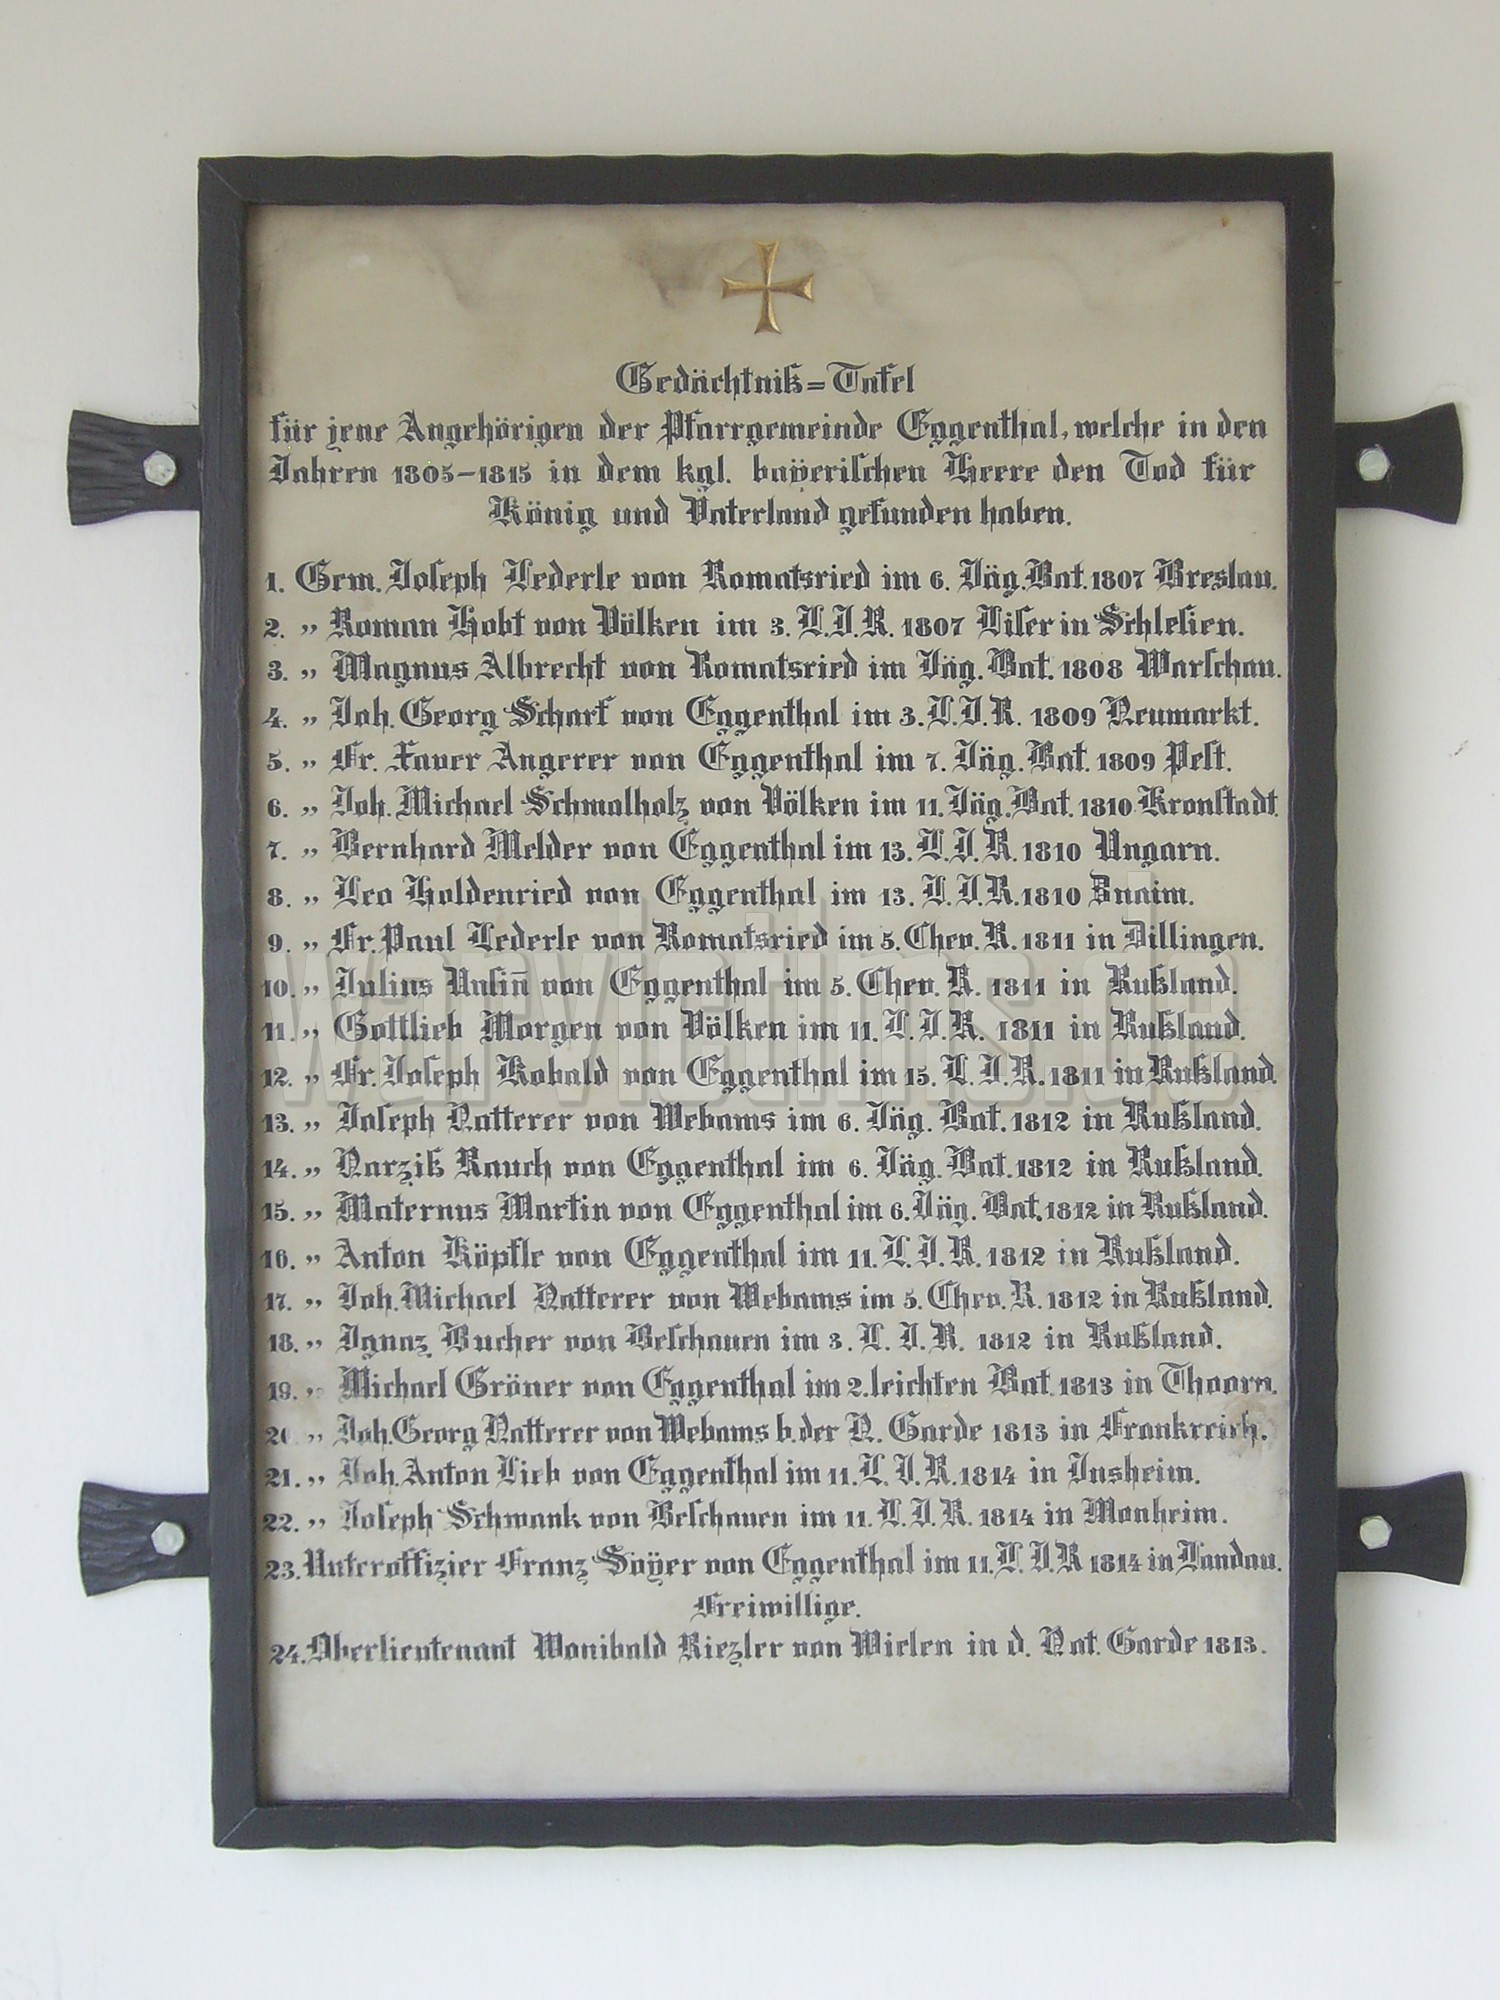 Gedächtniß=Tafel
für jene Angehörigen der Pfarrgemeinde Eggenthal, welche in den
Jahren 1805–1815 in dem kgl. bayerischen Heere den Tod für
König und Vaterland gefunden haben.
1. Gem. Joseph Lederle von Romatsried im 6. Jäg. Bat. 1807 Breslau.
2. „ Roman Hobt von Völken im 3. L. I. R. 1807 Liser in Schlesien.
3. „ Magnus Albrecht von Romatsried im Jäg. Bat. 1808 Warschau.
4. „ Joh. Georg Scharf von Eggenthal im 3. L. I. R. 1809 Neumarkt.
5. „ Fr. Xaver Angerer von Eggenthal im 7. Jäg. Bat. 1809 Pest.
6. „ Joh. Michael Schmalholz von Völken im 11. Jäg. Bat. 1810 Kronstadt.
7. „ Bernhard Melder von Eggenthal im 13. L. I. R. 1810 Ungarn.
8. „ Leo Holdenried von Eggenthal im 13. L. I. R. 1810 Znaim.
9. „ Fr. Paul Lederle von Romatsried im 5. Chev. R. 1811 in Dillingen.
10. „ Julius Unsiñ von Eggenthal im 5. Chev. R. 1811 in Rußland.
11. „ Gottlieb Morgen von Völken im 11. L. I. R. 1811 in Rußland.
12. „ Fr. Joseph Kobald von Eggenthal im 15. L. I. R. 1811 in Rußland.
13. „ Joseph Natterer von Webams im 6. Jäg. Bat. 1812 in Rußland.
14. „ Narziß Rauch von Eggenthal im 6. Jäg. Bat. 1812 in Rußland.
15. „ Maternus Martin von Eggenthal im 6. Jäg. Bat. 1812 in Rußland.
16. „ Anton Köpfle von Eggenthal im 11. L. I. R. 1812 in Rußland.
17. „ Joh. Michael Natterer von Webams im 5. Chev. R. 1812 in Rußland.
18. „ Ignaz Bucher von Beschauen im 3. L. I. R. 1812 in Rußland.
19. „ Michael Gröner von Eggenthal im 2. leichten Bat. 1813 in Thoorn.
20. „ Joh. Georg Natterer von Webams b. der N. Garde 1813 in Frankreich.
21. „ Joh. Anton Lieb von Eggenthal im 11. L. I. R. 1814 in Insheim.
22. „ Joseph Schwank von Beschauen im 11. L. I. R. 1814 in Monheim.
23. Unteroffizier Franz Soÿer von Eggenthal im 11. L. I. R 1814 in Landau.
Freiwillige.
24. Oberlieutenant Wonibald Riezler von Wielen in d. Nat. Garde 1813.
warvictims.de